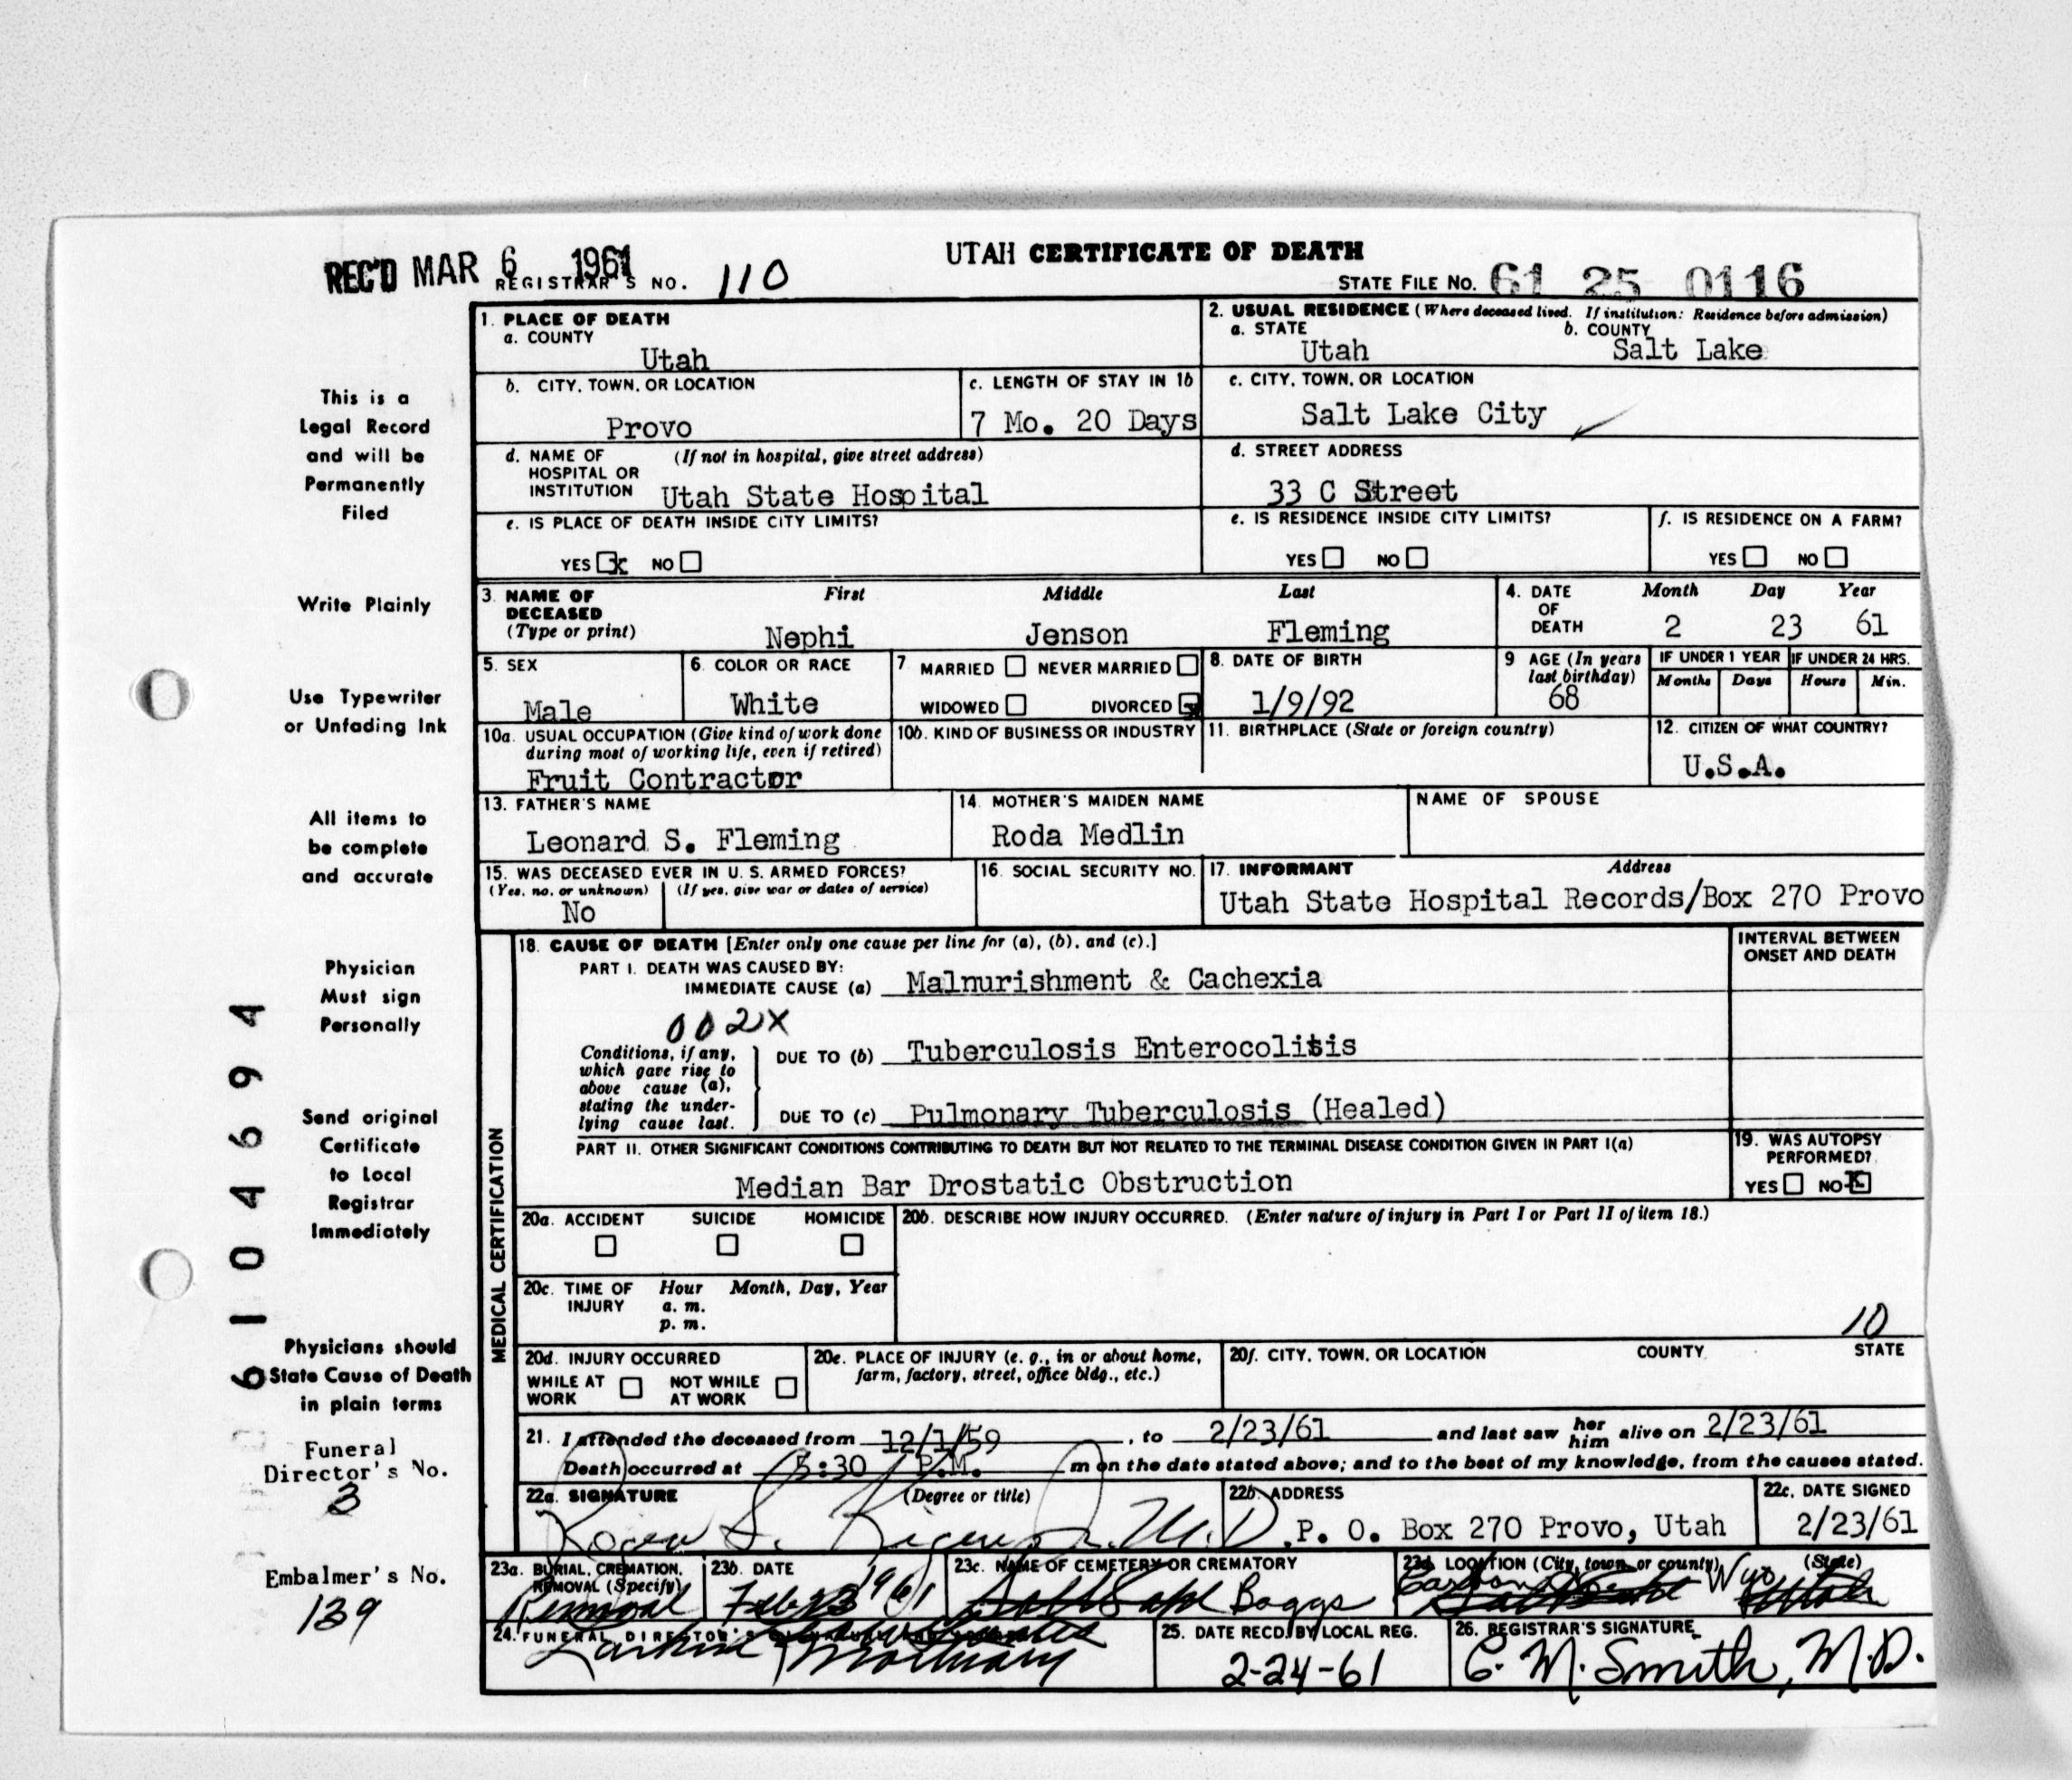 REC'D MAR 6 1961
UTAH CERTIFICATE OF DEATH
REGISTRAR'S NO. 110
STATE FILE No. 61 25 0116
This is a
Legal Record
and will be
Permanently
Filed
Write Plainly
Use Typewriter
or Unfading Ink
All items to
be complete
and accurate
Physician
Must sign
Personally
Send original
Certificate
to Local
Registrar
Immediately
Physicians should
State Cause of Death
in plain terms
Funeral
Director's No.
3
Embalmer's No.
139
6104694
1. PLACE OF DEATH
a. COUNTY
Utah
2. USUAL RESIDENCE (Where deceased lived. If institution: Residence before admission)
a. STATE b. COUNTY
Utah Salt Lake
b. CITY, TOWN, OR LOCATION
Provo
c. LENGTH OF STAY IN 1b
7 Mo. 20 Days
c. CITY, TOWN, OR LOCATION
Salt Lake City
d. NAME OF (If not in hospital, give street address)
HOSPITAL OR
INSTITUTION Utah State Hospital
d. STREET ADDRESS
33 C Street
e. IS PLACE OF DEATH INSIDE CITY LIMITS?
YES x NO
e. IS RESIDENCE INSIDE CITY LIMITS?
YES NO
f. IS RESIDENCE ON A FARM?
YES NO
3. NAME OF First Middle Last
DECEASED
(Type or print) Nephi Jenson Fleming
4. DATE Month Day Year
OF
DEATH 2 23 61
5. SEX
Male
6. COLOR OR RACE
White
7. MARRIED NEVER MARRIED
WIDOWED DIVORCED x
8. DATE OF BIRTH
1/9/92
9 AGE (In years
last birthday)
68
IF UNDER 1 YEAR IF UNDER 24 HRS.
Months Days Hours Min.
10a. USUAL OCCUPATION (Give kind of work done
during most of working life, even if retired)
Fruit Contractor
10b. KIND OF BUSINESS OR INDUSTRY
11. BIRTHPLACE (State or foreign country)
12. CITIZEN OF WHAT COUNTRY?
U.S.A.
13. FATHER'S NAME
Leonard S. Fleming
14. MOTHER'S MAIDEN NAME
Roda Medlin
NAME OF SPOUSE
15. WAS DECEASED EVER IN U. S. ARMED FORCES?
(Yes, no, or unknown) (If yes, give war or dates of service)
No
16. SOCIAL SECURITY NO.
17. INFORMANT Address
Utah State Hospital Records/Box 270 Provo
MEDICAL CERTIFICATION
18. CAUSE OF DEATH [Enter only one cause per line for (a), (b), and (c).]
INTERVAL BETWEEN
ONSET AND DEATH
PART I. DEATH WAS CAUSED BY:
IMMEDIATE CAUSE (a) Malnurishment & Cachexia
002X
Conditions, if any,
which gave rise to
above cause (a),
stating the under-
lying cause last.
DUE TO (b) Tuberculosis Enterocolitis
DUE TO (c) Pulmonary Tuberculosis (Healed)
PART II. OTHER SIGNIFICANT CONDITIONS CONTRIBUTING TO DEATH BUT NOT RELATED TO THE TERMINAL DISEASE CONDITION GIVEN IN PART I(a)
Median Bar Drostatic Obstruction
19. WAS AUTOPSY
PERFORMED?
YES NO x
20a. ACCIDENT SUICIDE HOMICIDE
20b. DESCRIBE HOW INJURY OCCURRED. (Enter nature of injury in Part I or Part II of item 18.)
20c. TIME OF Hour Month, Day, Year
INJURY a. m.
p. m.
10
20d. INJURY OCCURRED
WHILE AT NOT WHILE
WORK AT WORK
20e. PLACE OF INJURY (e. g., in or about home,
farm, factory, street, office bldg., etc.)
20f. CITY, TOWN, OR LOCATION COUNTY STATE
21. I attended the deceased from 12/1/59, to 2/23/61 and last saw her him alive on 2/23/61
Death occurred at 5:30 P.M. m on the date stated above; and to the best of my knowledge, from the causes stated.
22a. SIGNATURE (Degree or title)
M.D.
22b. ADDRESS
P. O. Box 270 Provo, Utah
22c. DATE SIGNED
2/23/61
23a. BURIAL, CREMATION,
REMOVAL (Specify)
Removal
23b. DATE
Feb 23 1961
23c. NAME OF CEMETERY OR CREMATORY
Baggs
23d. LOCATION (City, town, or county) (State)
Carbon Wyo
24. FUNERAL DIRECTOR'S
Larkin Mortuary
25. DATE RECD. BY LOCAL REG.
2-24-61
26. REGISTRAR'S SIGNATURE
C. M. Smith, M.D.